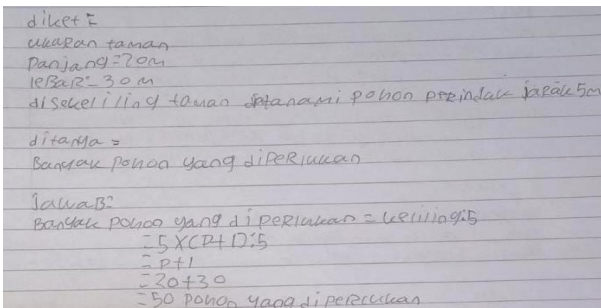 diket =
ukuran taman
Panjang = 20m
leBaR = 30m
disekeliling taman ditanami pohon perindak jarak 5m
ditanya =
Banyak pohon yang diPERlukan
JawaB:
Banyak pohon yang diperlukan = keliling:5
= 5 X(P+l):5
= P+l
= 20+30
= 50 pohon yang diperlukan